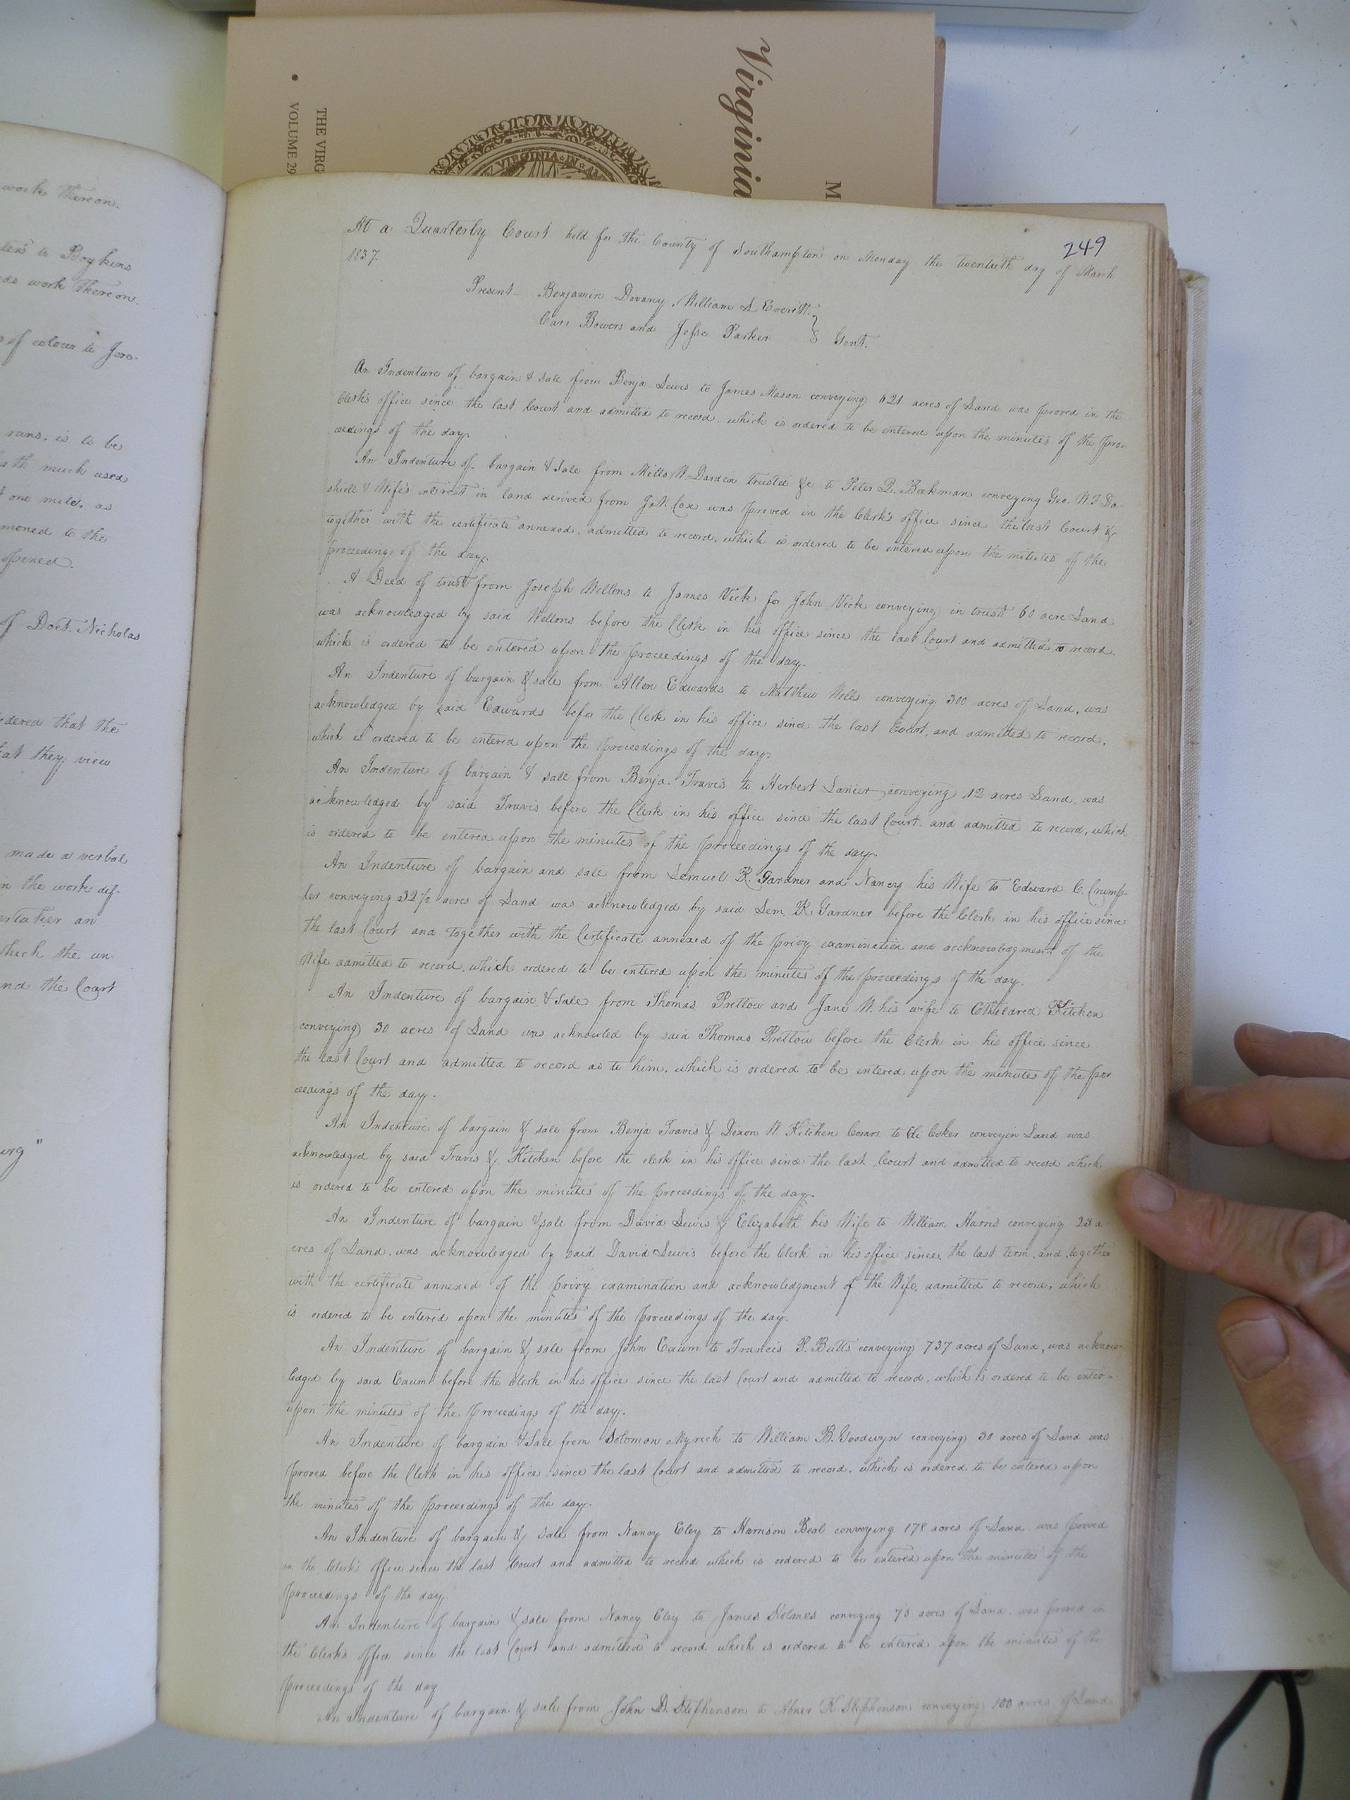 Virginia
M
THE VIRG
VOLUME 29
VIRGINIA IN
work thereon.
ler's to Boykins
work thereon.
of colour to Jero-
runs, is to be
much used
one mile, as
moned to the
opened.
of Doct. Nicholas
dered that the
at they view
made a verbal
in the work dif-
an
which the un
nd the Court
urg"
249
At a Quarterly Court held for the County of Southampton on Monday the twentieth day of March
1837.
Present Benjamin Devany, William L Everitt
Carr Bowers and Jesse Parker Gent.
An Indenture of bargain & sale from Benja Lewis to James Mason conveying 621 acres of Land was proved in the
Clerk's office since the last Court and admitted to record, which is ordered to be entered upon the minutes of the pro-
ceedings of the day.
An Indenture of bargain & sale from Mills W. Darden trustee &c to Peter D. Beekman conveying Geo. W.
& Wife's interest in land derived from Cox was proved in the Clerk's office since the last Court &
together with the certificate annexed, admitted to record, which is ordered to be entered upon the minutes of the
proceedings of the day.
A Deed of trust from Joseph Wellons to James Vick for John Vick conveying in trust 60 acre Land
was acknowledged by said Wellons before the Clerk in his office since the last Court and admitted to record,
which is ordered to be entered upon the proceedings of the day.
An Indenture of bargain & sale from Allen Edwards to Matthew Wells conveying 300 acres of Land, was
acknowledged by said Edwards before the Clerk in his office since the last Court, and admitted to record,
which is ordered to be entered upon the proceedings of the day.
An Indenture of bargain & sale from Benja. Travis to Herbert Lanier conveying 12 acres Land was
acknowledged by said Travis before the Clerk in his office since the last Court and admitted to record, which
is ordered to be entered upon the minutes of the proceedings of the day.
An Indenture of bargain and sale from Lemuel K. Gardner and Nancy his Wife to Edward C. Crump-
ler conveying 32½ acres of Land was acknowledged by said Lem K Gardner before the Clerk in his office since
the last Court and together with the Certificate annexed of the privy examination and acknowledgment of the
Wife admitted to record, which ordered to be entered upon the minutes of the proceedings of the day.
An Indenture of bargain & sale from Thomas Pretlow and Jane W. his wife to Etheldred Kitchen
conveying 30 acres of Land was acknowled by said Thomas Pretlow before the Clerk in his office since
the last Court and admitted to record as to him, which is ordered to be entered upon the minutes of the pro
ceedings of the day.
An Indenture of bargain & sale from Benja Travis & Dixon W. Kitchen to Eli Coker conveyin Land was
acknowledged by said Travis & Kitchen before the clerk in his office since the last Court and admitted to record which
is ordered to be entered upon the minutes of the proceedings of the day.
An Indenture of bargain & sale from David Lewis & Elizabeth his Wife to William Harris conveying a-
cres of Land, was acknowledged by said David Lewis before the Clerk in his office since the last term, and, together
with the certificate annexed of the privy examination and acknowledgment of the Wife, admitted to record, which
is ordered to be entered upon the minutes of the proceedings of the day.
An Indenture of bargain & sale from John Exum to Francis P. Butts conveying 737 acres of Land, was acknow-
ledged by said Exum before the Clerk in his office since the last Court and admitted to record, which is ordered to be enter-
upon the minutes of the proceedings of the day.
An Indenture of bargain & sale from Solomon Myrick to William B. Goodwyn conveying 30 acres of Land was
proved before the Clerk in his office since the last Court and admitted to record, which is ordered to be entered upon
the minutes of the proceedings of the day.
An Indenture of bargain & sale from Nancy Eley to Harrison Beal conveying 178 acres of Land was proved
in the Clerk's office since the last Court and admitted to record which is ordered to be entered upon the minutes of the
proceedings of the day.
An Indenture of bargain & sale from Nancy Eley to James conveying 75 acres of Land was proved in
the Clerk's office since the last Court and admitted to record which is ordered to be entered upon the minutes of the
proceedings of the day
An Indenture of bargain & sale from John D. Stephenson to Abner K Stephenson conveying 100 acres of Land